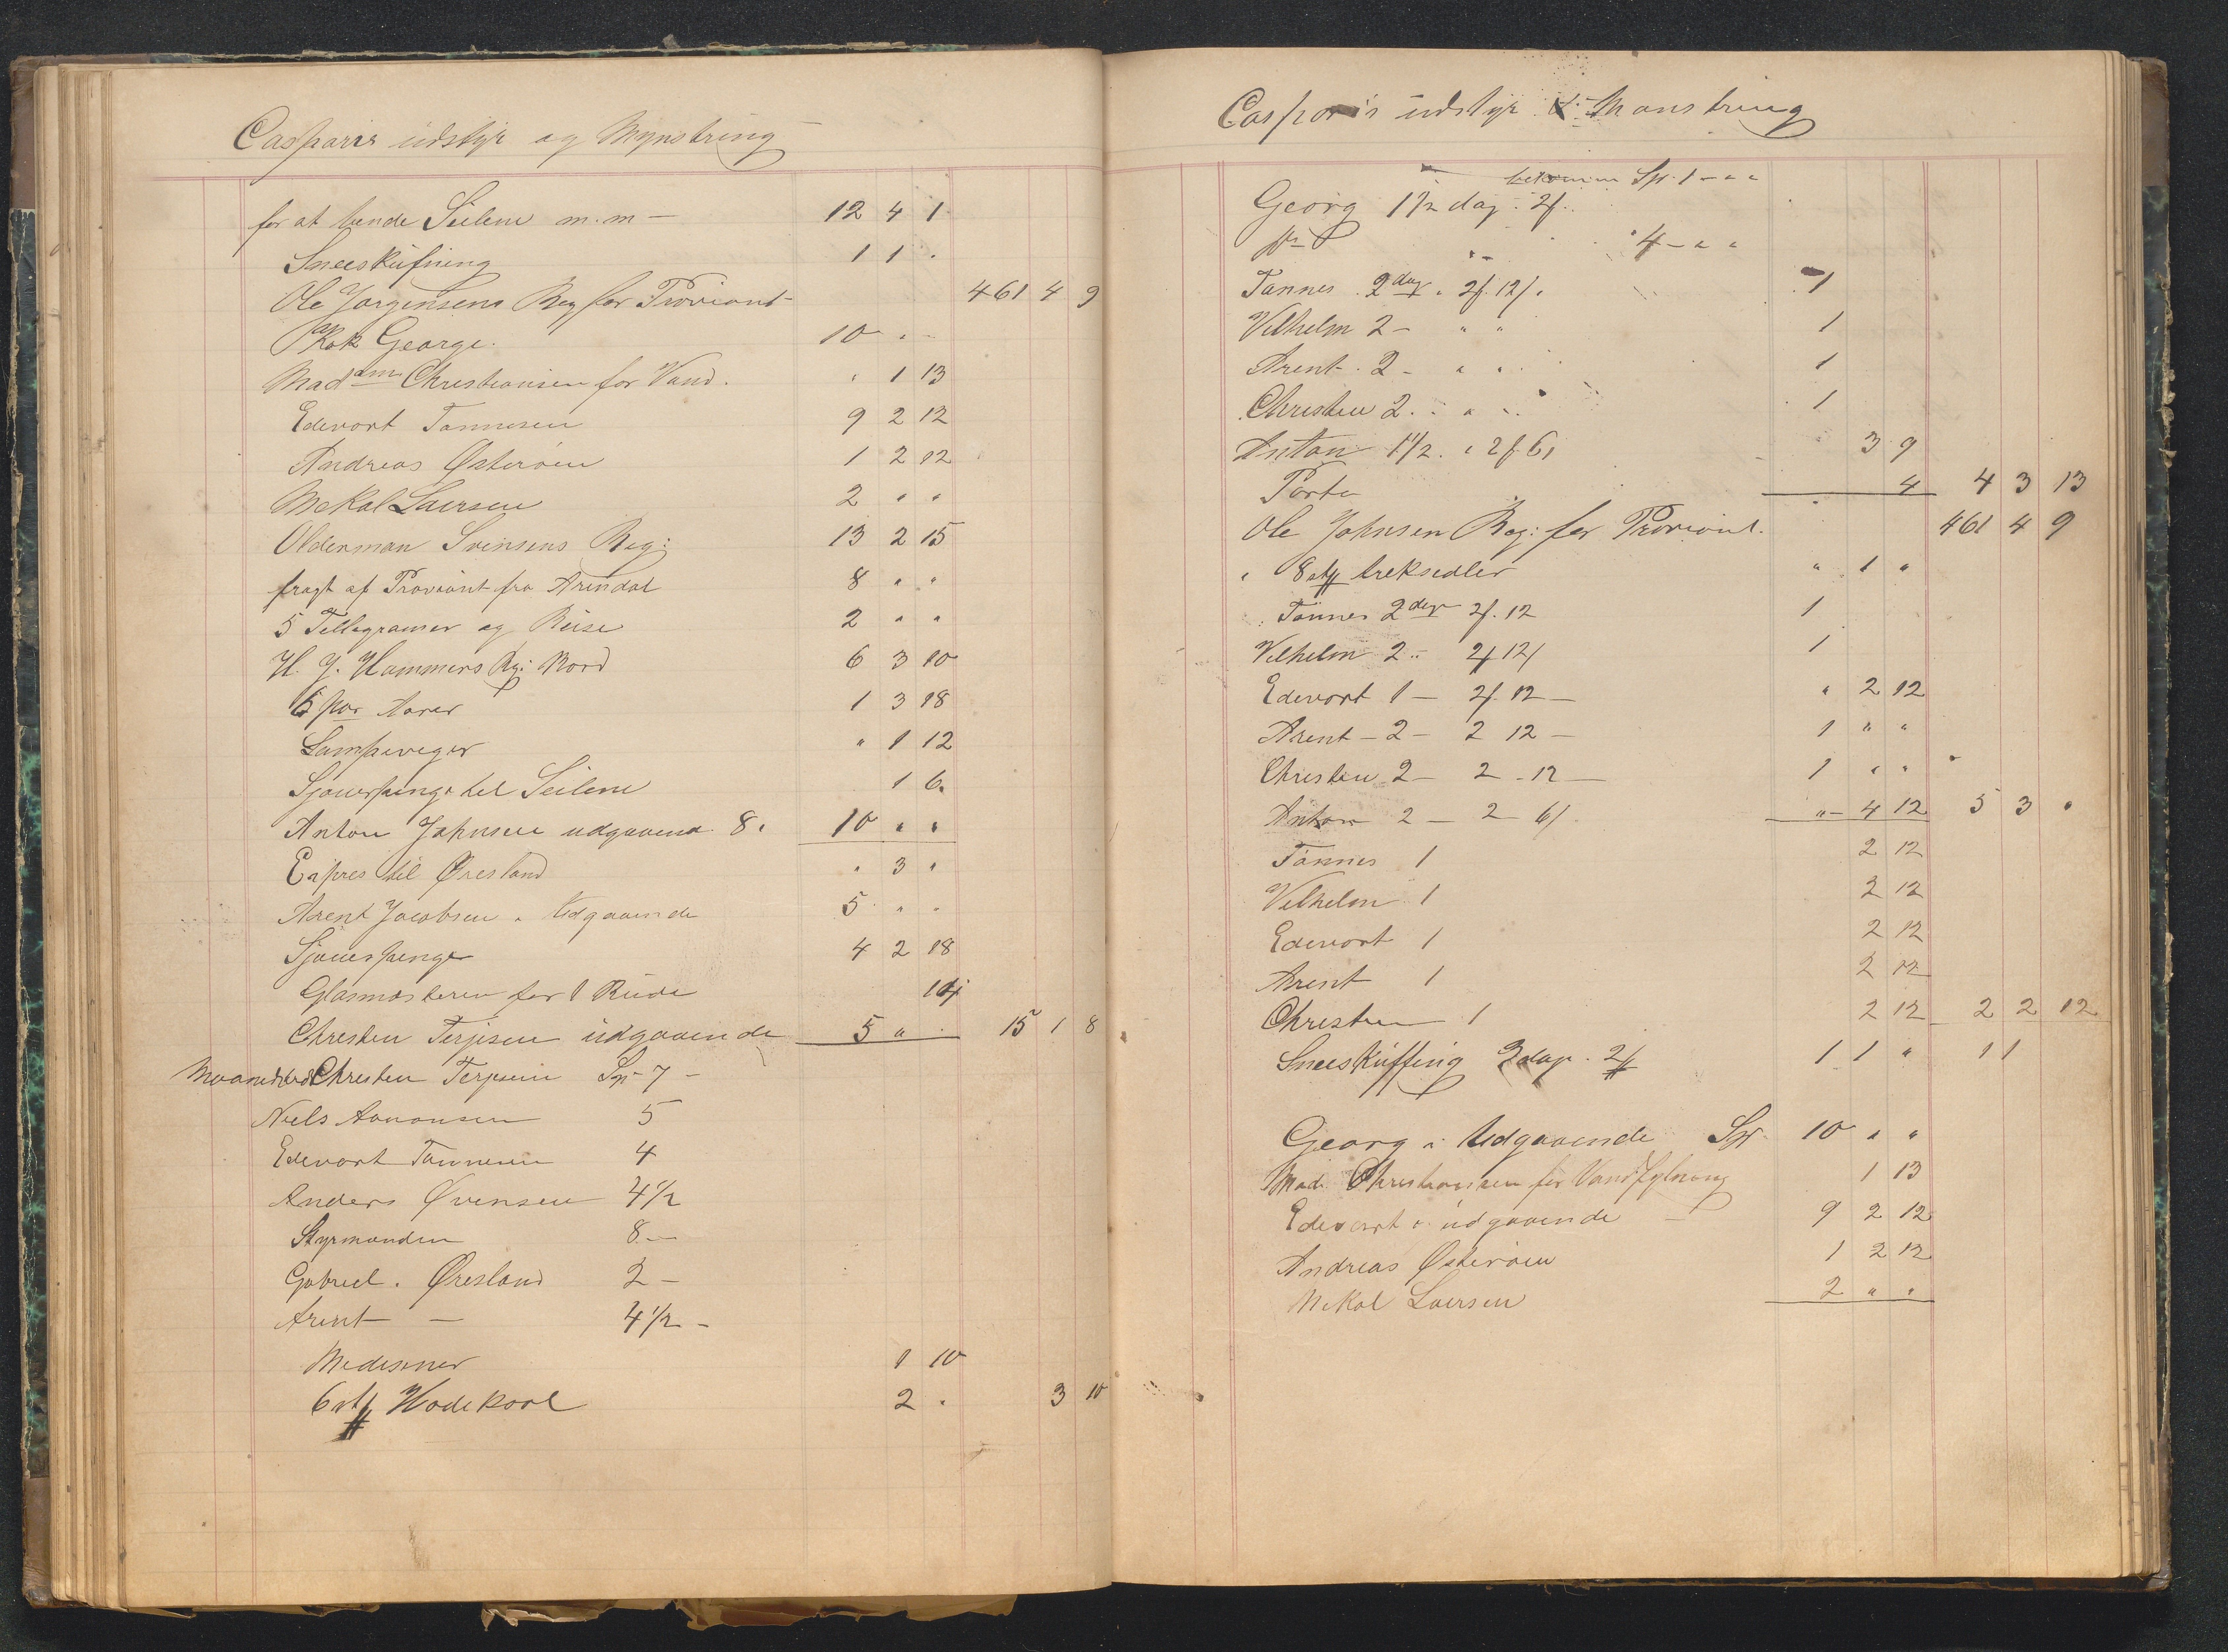 Casparis udstÿr og Mynstring
for at bende Seilene m.m — 12 4 1
Sneeskufning 1 1 .
Ole Jørgensens Reg for Proviant - 461 4 9
Kok George. 10 . -
Mad am Christiansen for Vand. " 1 13
Edevort Tønnesen 9 2 12
Andreas Østerøen 1 2 12
Nekal Laersen 2 " "
Olderman Svensens Reg: 13 2 15
fragt af Proviant fra Arendal 8 " "
5 Tellegramer og Reise 2 " "
H. J. Hammers Rg: Bord 6 3 10
6 Par Aarer 1 3 18
Lampeveger " 1 12
Sjouerpenge tel Seilene 1 6
Anton Johnsen udgaaend 8. 10 " "
Expres til Øresland " 3 "
Arent Jacobsen " Udgaaende 5 " "
Sjouerpenge 4 2 18
Glasmesteren for 1 Rude 14
Chresten Terjesen udgaaende 5 " . 15 1 8
Chresten Terjesen Sp 7 -
Niels Aanonsen 5
Edevort Tønnesen 4
Anders Øvensen 4 1/2
Styrmanden 8 -
Gabriel. Øresland 2 -
Arent — 4 1/2 -
Medesiner 1 10
6 st Hodekaal 2 . 3 10
Casparis udstÿr & Mønstring
bekommen Sp. 1 - " "
Georg 1 1/2 dag. 2f.
4 - " "
Tønnes 2 dag " 2f. 12/. 1
Vilhelm 2 - " " 1
Arent. 2 - " " 1
Christen 2. - " - 1
Anton 1 1/2. " 2f 6/ 3 9
Porto 4 4 3 13
Ole Johnsen Reg: for Proviant. 461 4 9
" 8 st treksedler " 1 "
Tønnes 2 dage 2f. 12 1
Vilhelm 2 - 2f 12/ 1
Edevort 1 — 2f. 12 — " 2 12
Arent - 2 - 2 12 — 1 " "
Christen 2 — 2 - 12 — 1 " "
Anton 2 — 2 - 6/. " - 4 12 5 3 "
Tønnes 1 2 12
Vilhelm 1 2 12
Edevort 1 2 12
Arent 1 2 12
Christen 1 2 12 2 2 12
Sneeskuffing 3 dage. 2f 1 1 " 1 1
Georg i Udgaaende Sp. 10 " "
Mad. Christiansen for Vandfylning 1 13
Edevart i udgaaende — 9 2 12
Andreas Østerøen 1 2 12
Nekal Laersen 2 " "